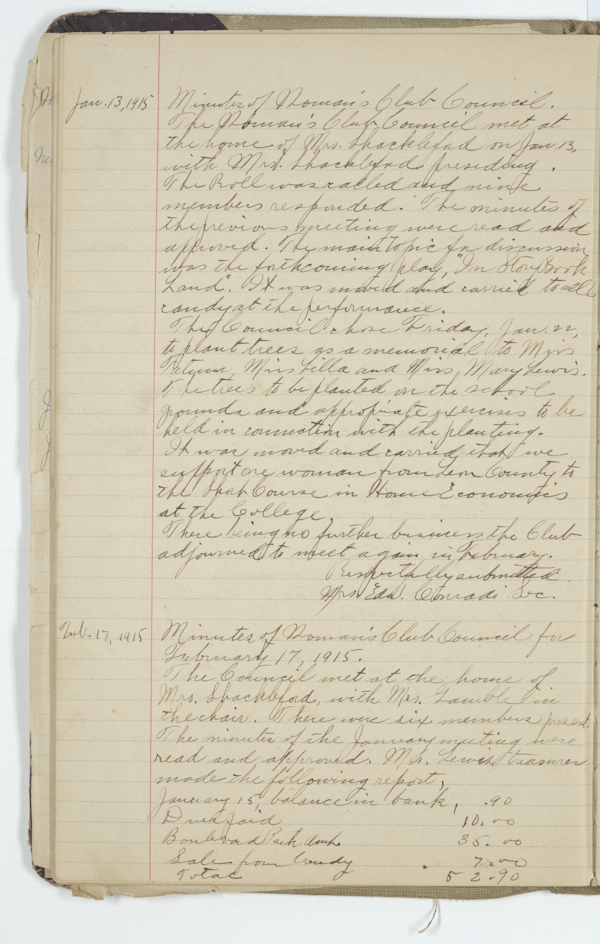 Jan. 13, 1915 Minutes of Woman's Club Council.
The Woman's Club Council met at
the home of Mrs. Shackleford on Jan. 13,
with Mrs. Shackleford presiding.
The Roll was called and nine
members responded. The minutes of
the previous meeting were read and
approved. The main topic for discussion
was the forthcoming play, "In Story Book
Land". It was moved and carried to sell
candy at the performance.
The Council chose Friday, Jan. 22,
to plant trees as a memorial to Miss
Tatum, Miss Lilla and Miss Mary Lewis.
The trees to be planted on the school
grounds and appropriate exercises to be
held in connection with the planting.
It was moved and carried that we
support one woman from Leon County to
the Short Course in Home Economics
at the College.
There being no further business the Club
adjourned to meet again in February.
Respectfully submitted
Mrs. Edw. Conradi Sec.
Feb. 17, 1915 Minutes of Woman's Club Council for
February 17, 1915.
The Council met at the home of
Mrs. Shackleford, with Mrs. Gamble in
the chair. There were six members present.
The minutes of the January meeting were
read and approved. Mrs. Lewis, treasurer
made the following report,
January 15, balance in bank, .90
Dues paid 10.00
Boulevard Park 35.00
Sale from Candy 7.00
Total 52.90